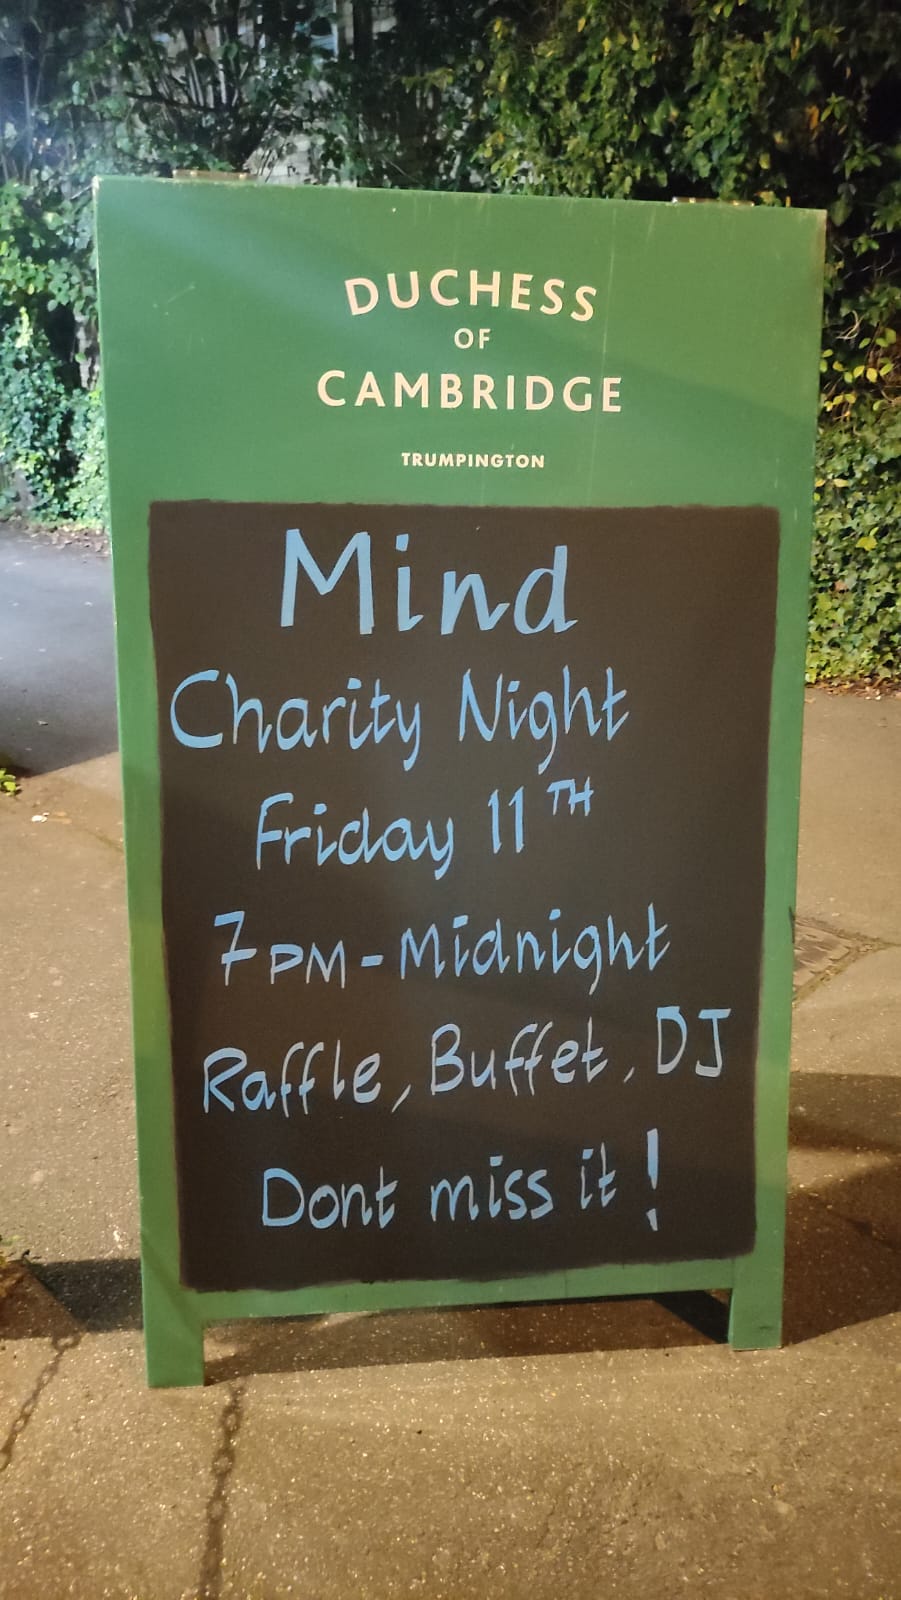 DUCHESS
OF
CAMBRIDGE
TRUMPINGTON
Mind
Charity Night
Friday 11TH
7PM - Midnight
Raffle, Buffet, DJ
Dont miss it!